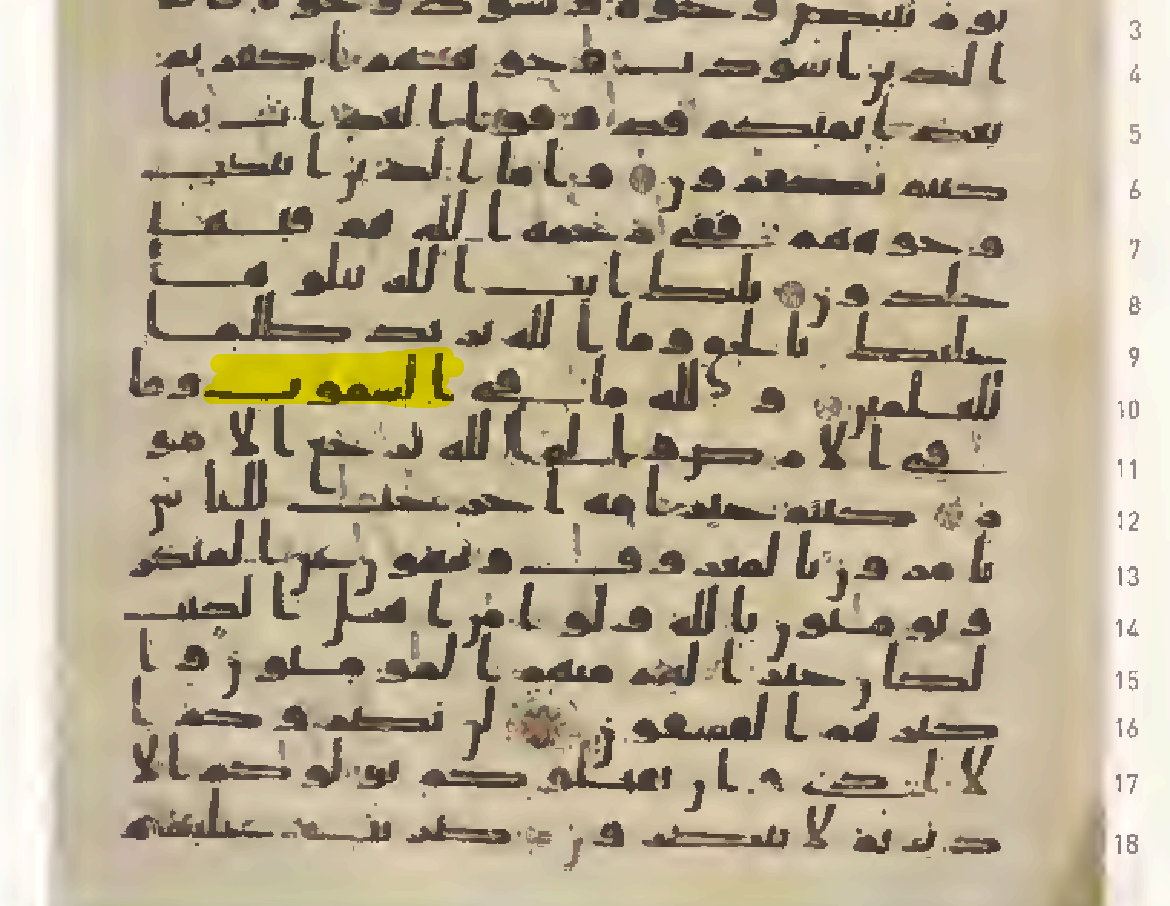 يوم تبيض وجوه وتسود وجوه فام
ا الذين اسودت وجوههم اكفرتم
بعد ايمنكم فذوقوا العذاب بما
كنتم تكفرون واما الذين ابيضت
وجوههم ففي رحمه الله هم فيها
خلدون تلك ايت الله نتلوها
عليك بالحق وما الله يريد ظلما
للعلمين ولله ما في السموت وما
في الارض والى الله ترجع الامو
ر كنتم خير امه اخرجت للناس
تامرون بالمعروف وتنهون عن المنكر
وتومنون بالله ولو امن اهل الكتب
لكان خيرا لهم منهم المومنون وا
كثرهم الفسقون لن يضروكم ا
لا اذى وان يقتلوكم يولوكم الا
دبر ثم لا ينصرون ضربت عليهم
3
4
5
6
7
8
9
10
11
12
13
14
15
16
17
18